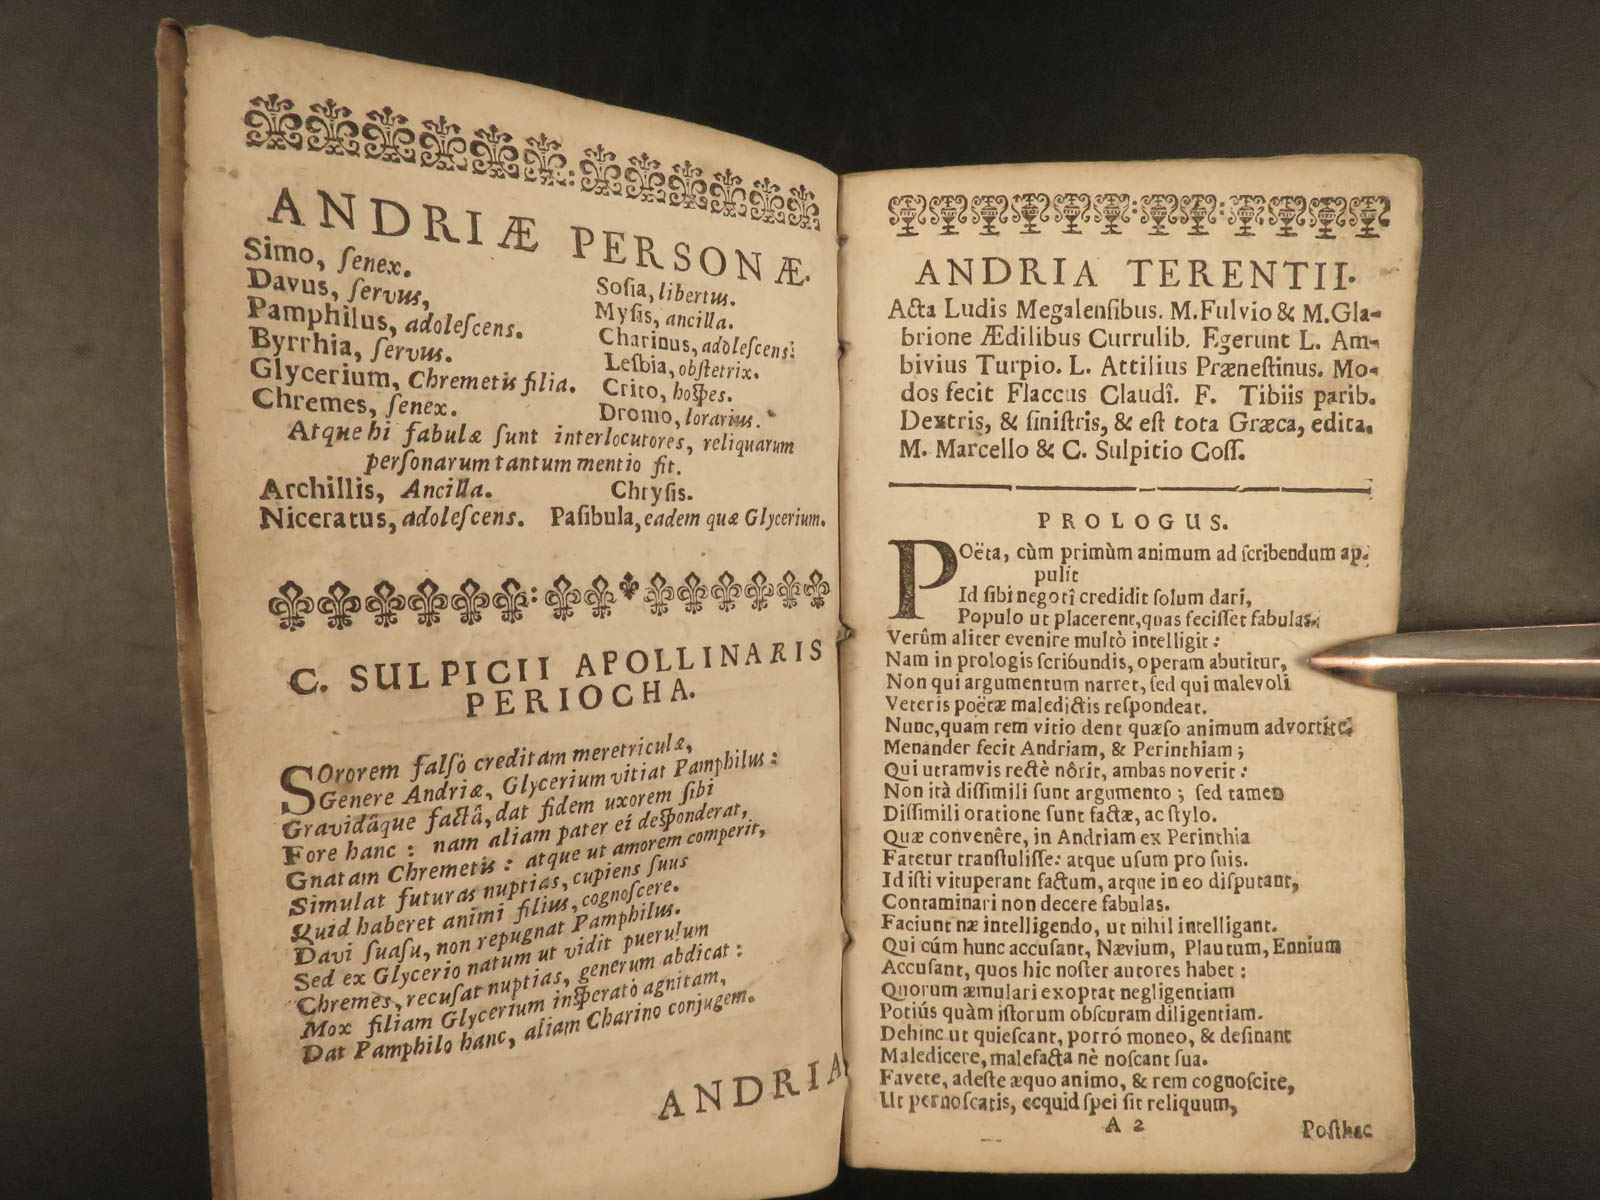 ANDRIÆ PERSONÆ.
Simo, ſenex.
Davus, ſervus,
Pamphilus, adoleſcens.
Byrrhia, ſervus.
Glycerium, Chremetis filia.
Chremes, ſenex.
Soſia, libertus.
Myſis, ancilla.
Charinus, adoleſcens.
Leſbia, obſtetrix.
Crito, hoſpes.
Dromo, lorarius.
Atque hi fabulæ ſunt interlocutores, reliquarum
perſonarum tantum mentio fit.
Archillis, Ancilla.
Chryſis.
Niceratus, adoleſcens.
Paſibula, eadem quæ Glycerium.
C. SULPICII APOLLINARIS
PERIOCHA.
SOrorem falſò creditam meretriculæ,
Genere Andriæ, Glycerium vitiat Pamphilus:
Gravidâque factâ, dat fidem uxorem ſibi
Fore hanc: nam aliam pater ei deſponderat,
Gnatam Chremetis: atque ut amorem comperit,
Simulat futuras nuptias, cupiens ſuus
Quid haberet animi filius, cognoſcere.
Davi ſuaſu, non repugnat Pamphilus.
Sed ex Glycerio natum ut vidit puerulum
Chremes, recuſat nuptias, generum abdicat:
Mox filiam Glycerium inſperatò agnitam,
Dat Pamphilo hanc, aliam Charino conjugem.
ANDRIA
ANDRIA TERENTII.
Acta Ludis Megalenſibus. M. Fulvio & M. Gla-
brione Ædilibus Currulib. Egerunt L. Am-
bivius Turpio. L. Attilius Præneſtinus. Mo-
dos fecit Flaccus Claudî. F. Tibiis parib.
Dextris, & ſiniſtris, & eſt tota Græca, edita.
M. Marcello & C. Sulpitio Coſſ.
PROLOGUS.
POëta, cùm primùm animum ad ſcribendum ap-
pulit
Id ſibi negotî credidit ſolum dari,
Populo ut placerent, quas feciſſet fabulas.
Verûm aliter evenire multò intelligit:
Nam in prologis ſcribundis, operam abutitur,
Non qui argumentum narret, ſed qui malevoli
Veteris poëtæ maledictis reſpondeat.
Nunc, quam rem vitio dent quæſo animum advortite.
Menander fecit Andriam, & Perinthiam;
Qui utramvis rectè nôrit, ambas noverit:
Non ità diſſimili ſunt argumento; ſed tamen
Diſſimili oratione ſunt factæ, ac ſtylo.
Quæ convenêre, in Andriam ex Perinthia
Fatetur tranſtuliſſe: atque uſum pro ſuis.
Id iſti vituperant factum, atque in eo diſputant,
Contaminari non decere fabulas.
Faciunt næ intelligendo, ut nihil intelligant.
Qui cúm hunc accuſant, Nævium, Plautum, Ennium
Accuſant, quos hic noſter autores habet:
Quorum æmulari exoptat negligentiam
Potiús quàm iſtorum obſcuram diligentiam.
Dehinc ut quieſcant, porró moneo, & deſinant
Maledicere, malefacta nè noſcant ſua.
Favete, adeſte æquo animo, & rem cognoſcite,
Ut pernoſcatis, ecquid ſpei ſit reliquum,
A 2
Poſthac